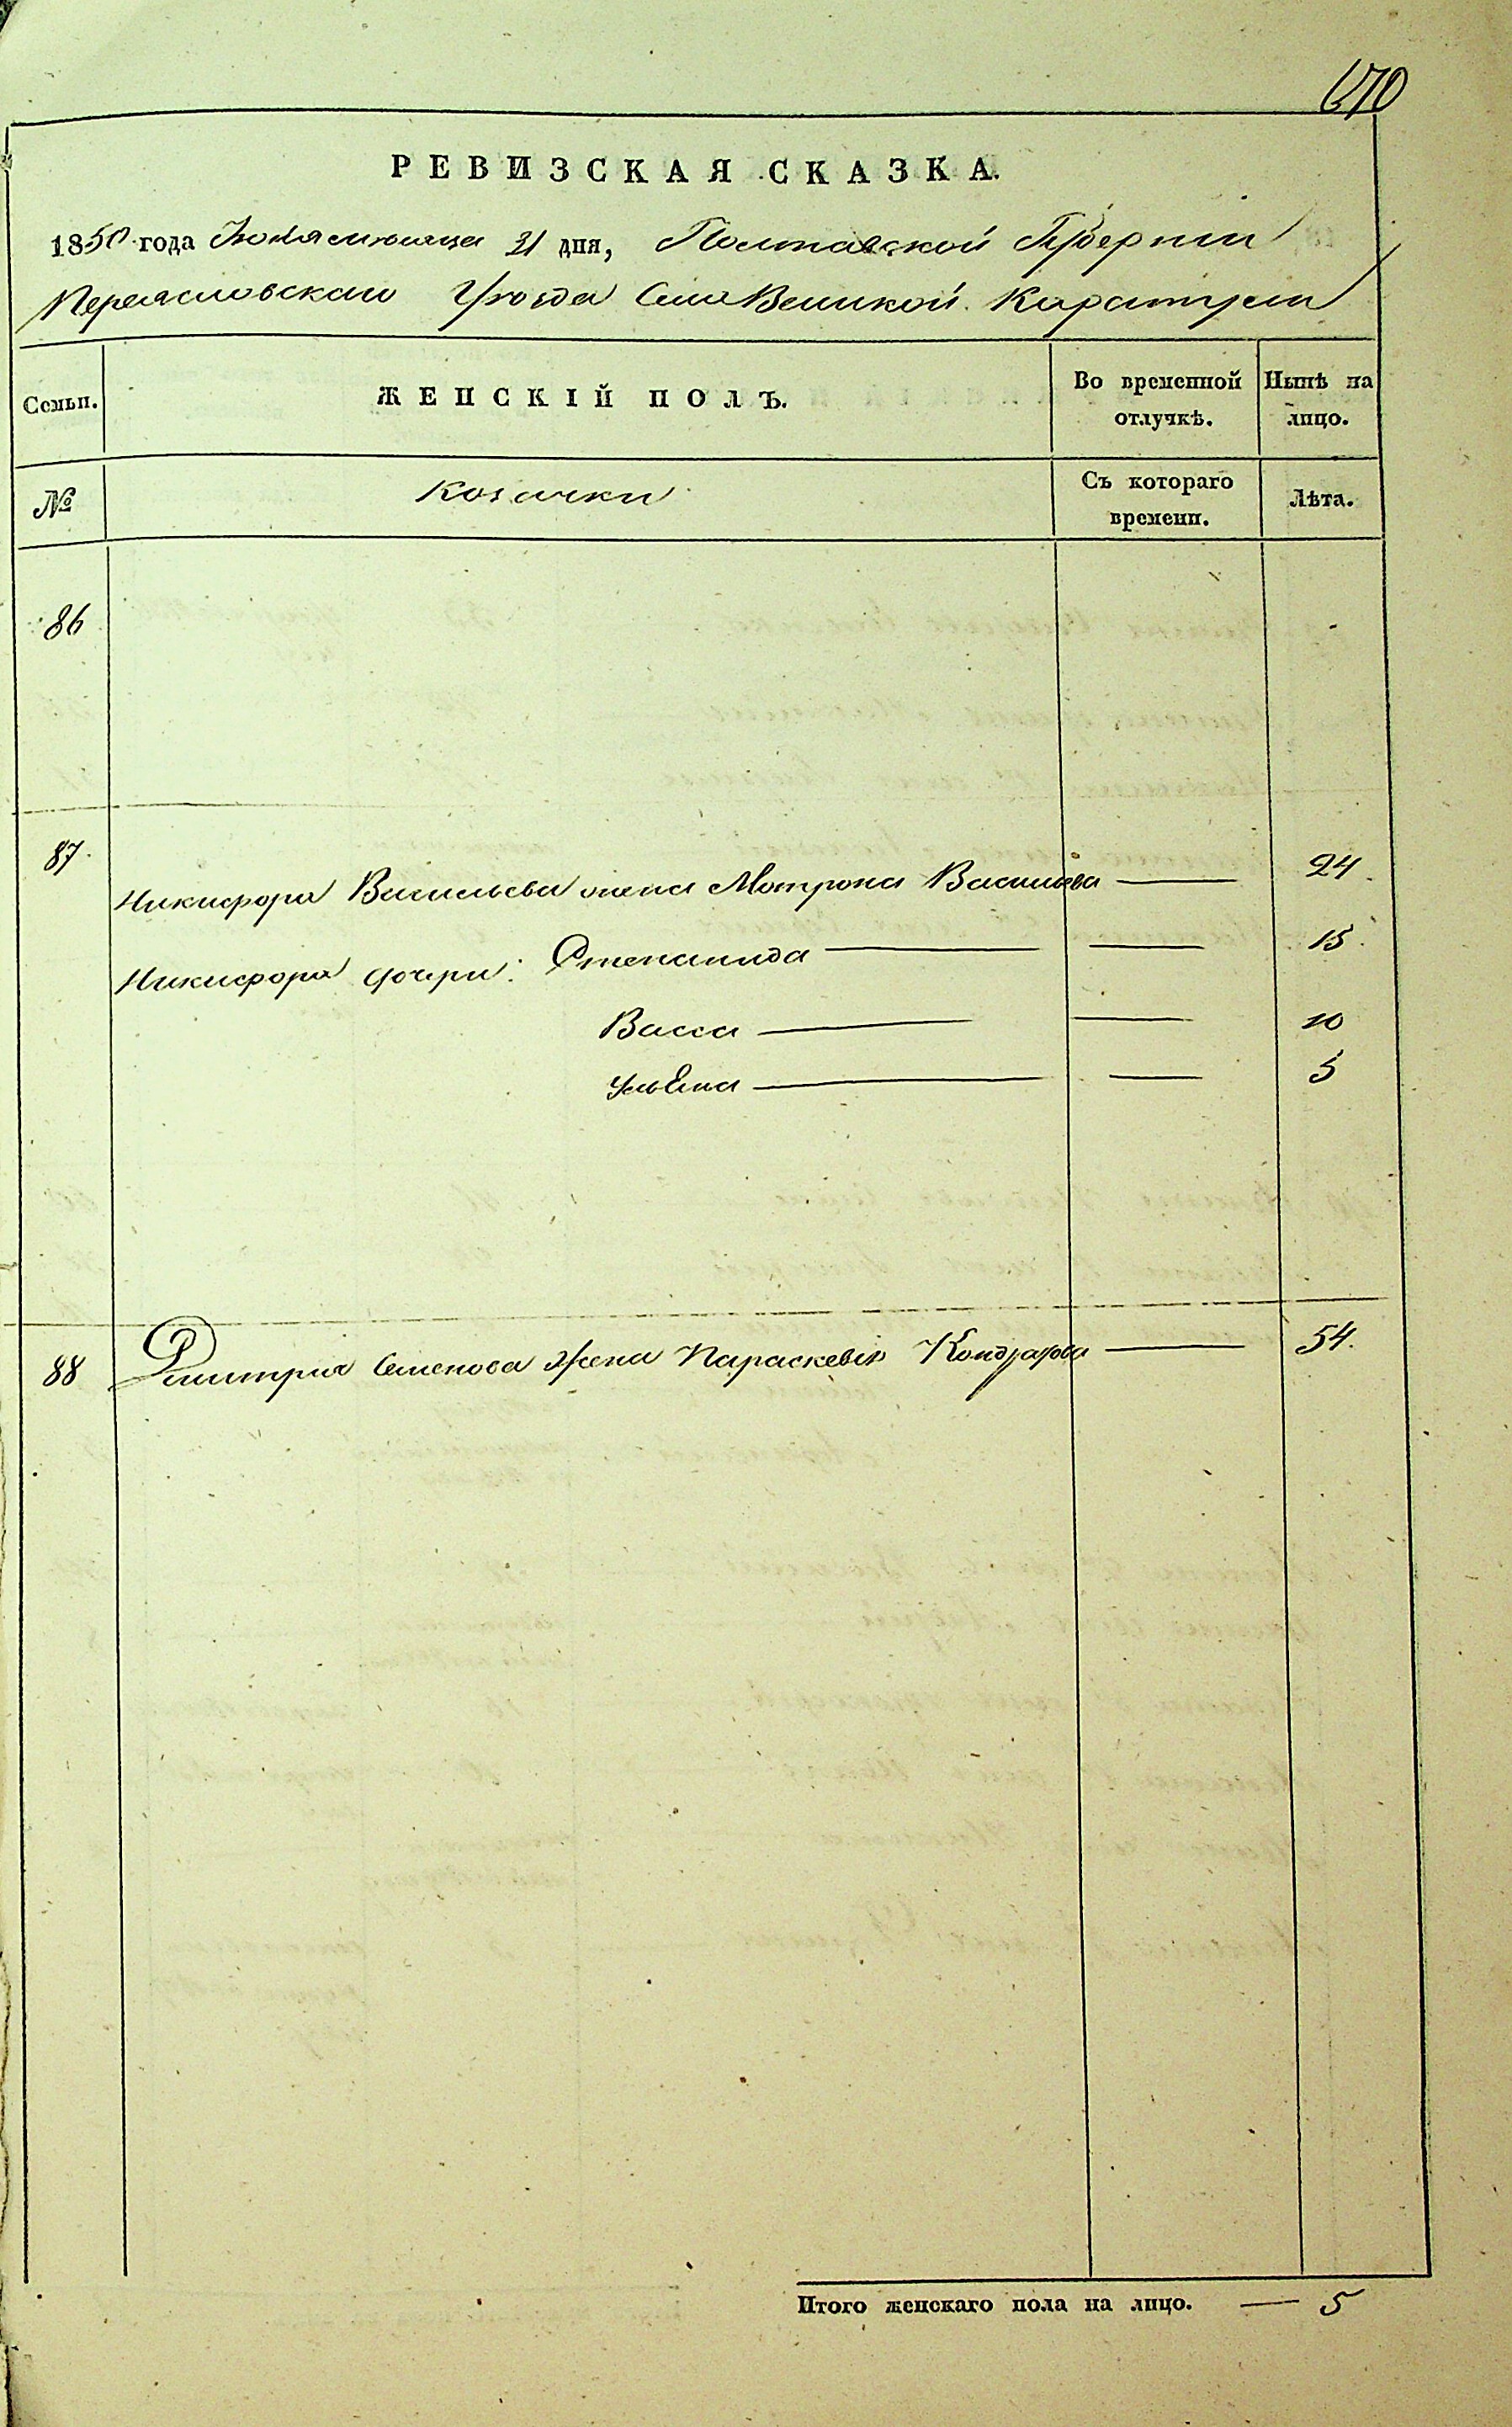 670
РЕВИЗСКАЯ СКАЗКА.
1850 года Іюля месяца 31 дня, Полтавской Губерніи
Переясловскаго Уѣзда Села Великой Каратули
Семьи.
ЖЕНСКІЙ ПОЛЪ.
Во временной отлучкѣ.
Нынѣ на лицо.
№
Козачки
Съ котораго времени.
Лѣта.
86
87
Никифора Васильева жена Мотрона Васильева — 24
Никифора дочери: Степанида — — 15
Васса — — 10
Ульяна — — 5
88 Дмитрия Семенова жена Параскевія Кондратова — 54.
Итого женскаго пола на лицо. — 5